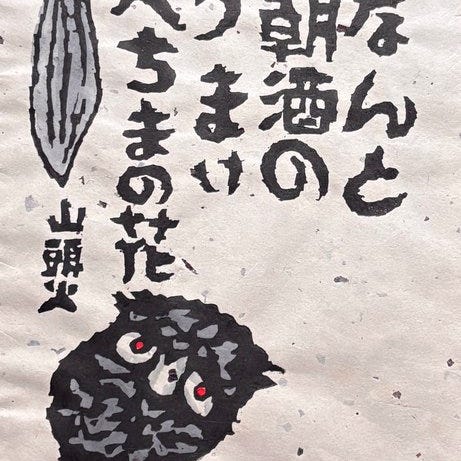 なんと
朝酒の
うまけ
へちまの花
山頭火